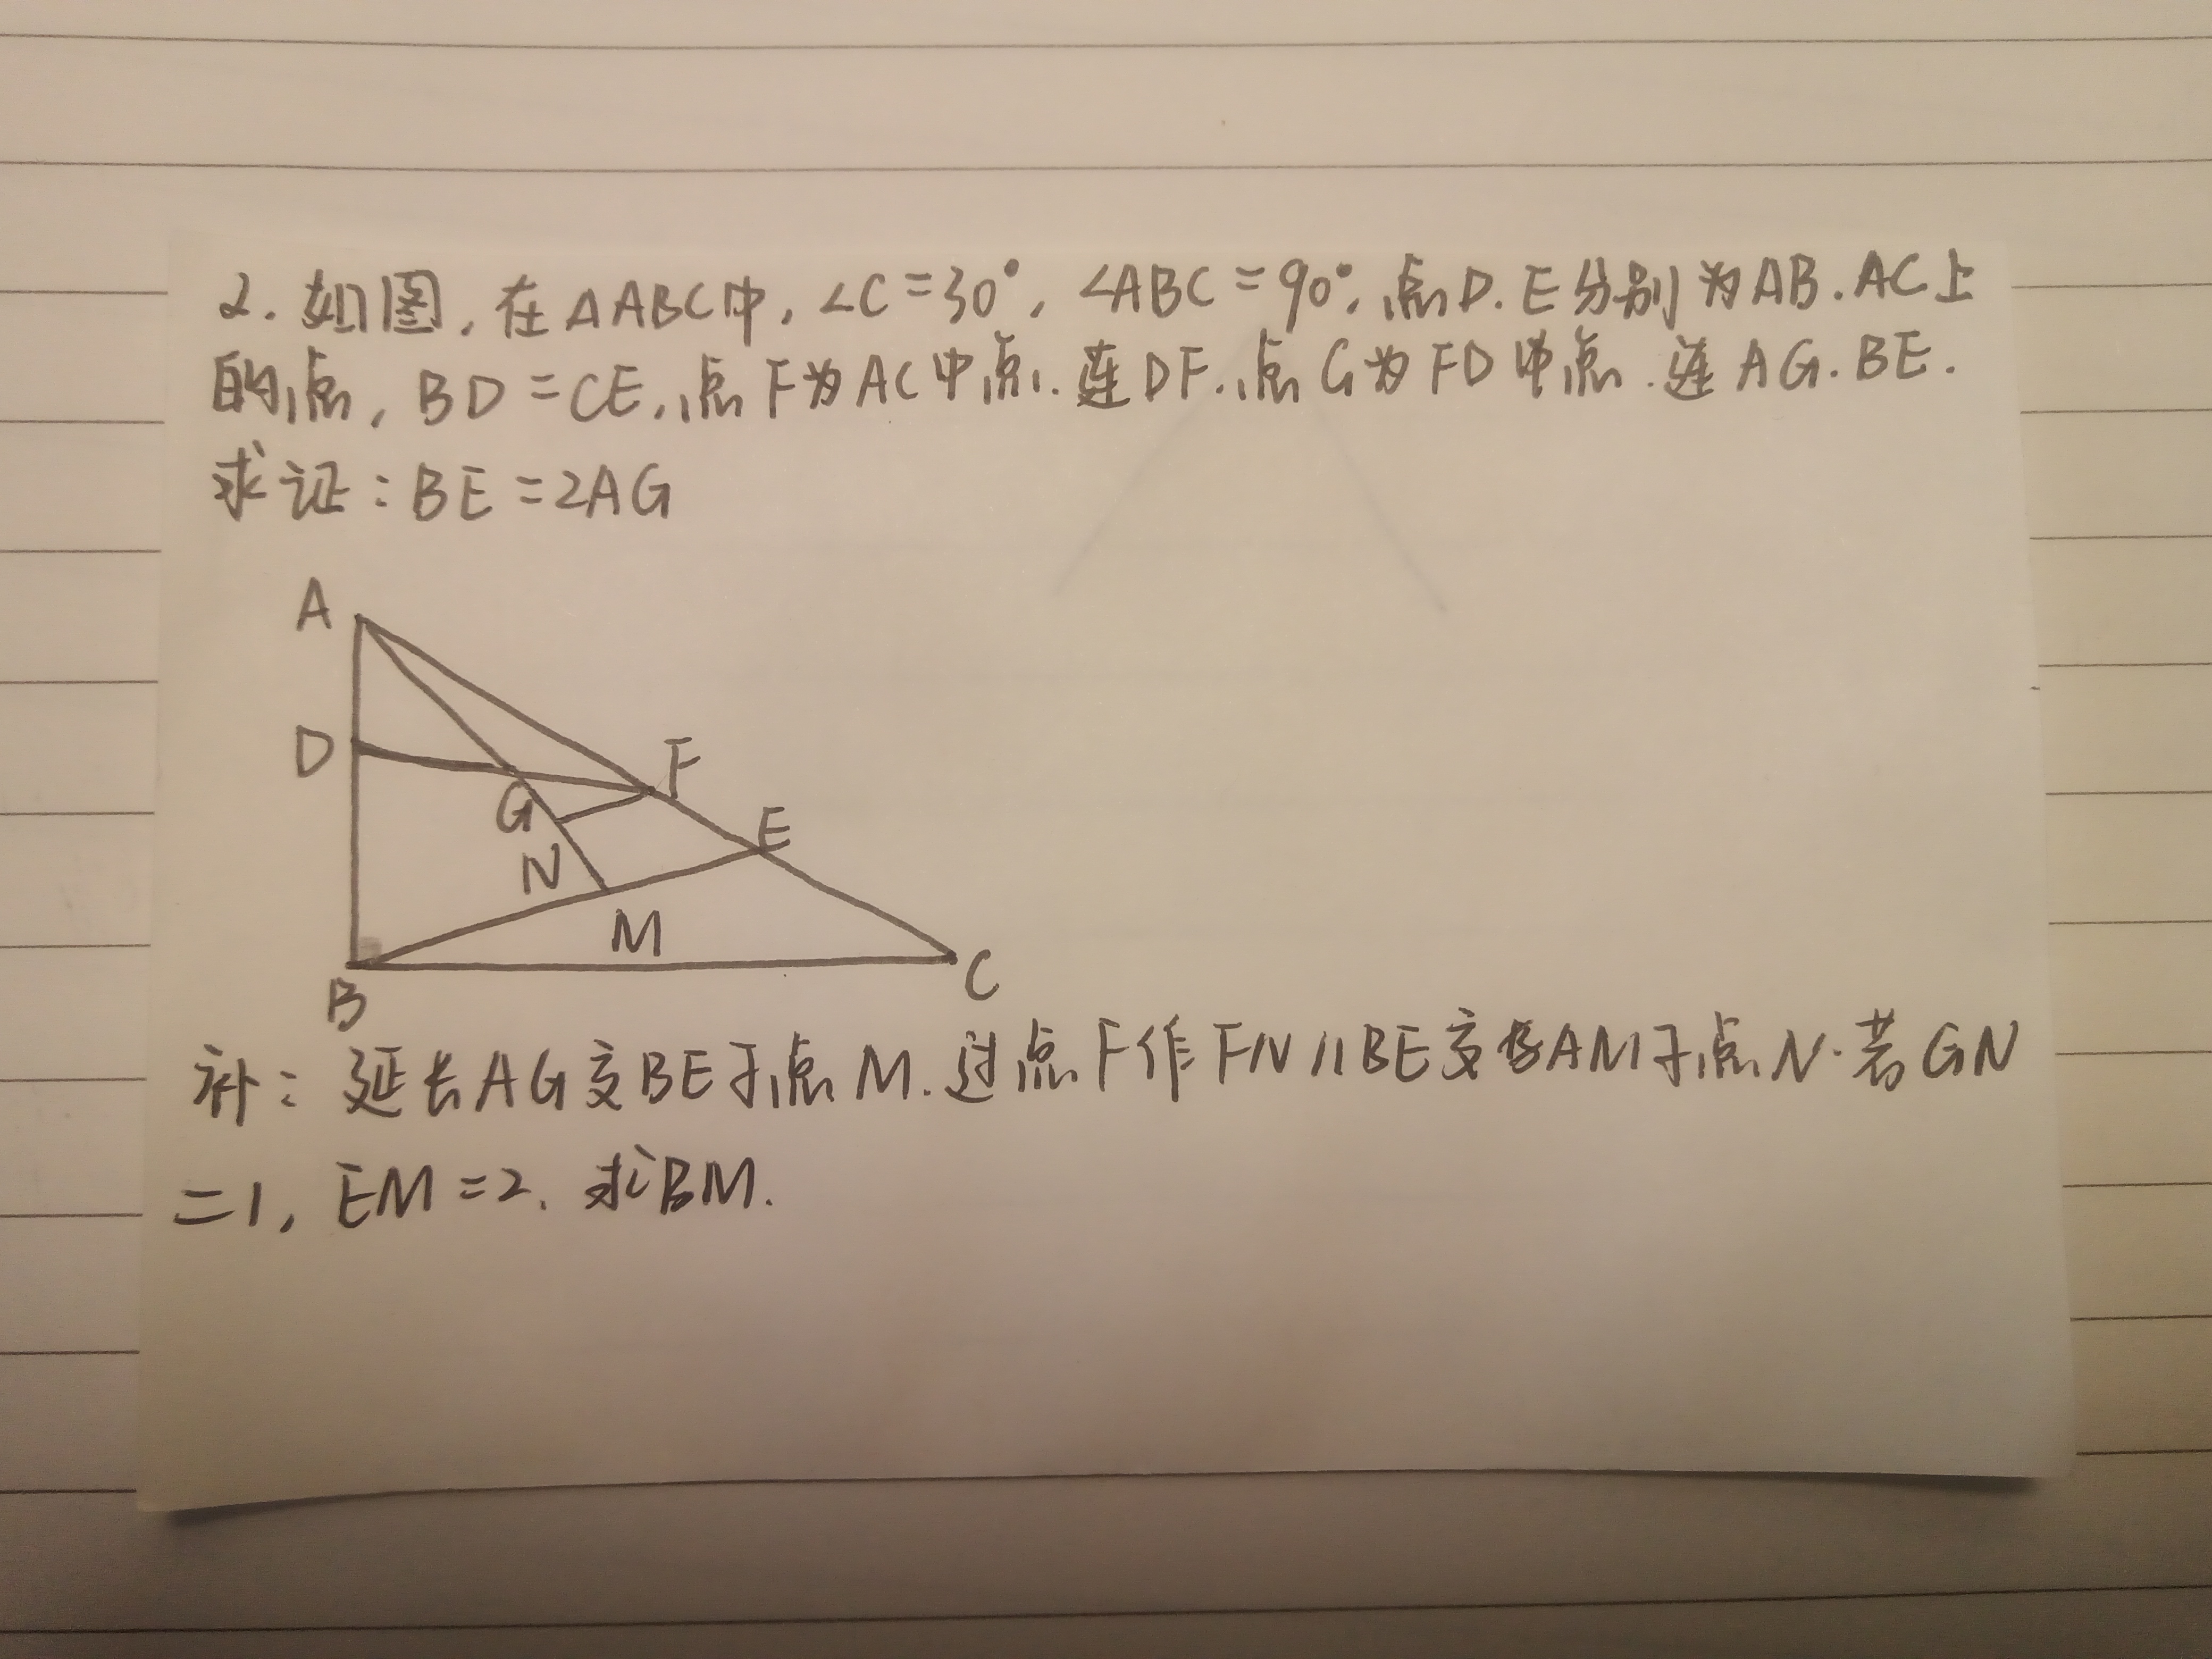 2.如图,在△ABC中,∠C=30°,∠ABC=90°,点D.E分别为AB.AC上
的点,BD=CE,点F为AC中点.连DF.点G为FD中点.连AG.BE.
求证:BE=2AG
A
D
F
G
E
N
M
C
B
补:延长AG交BE于点M.过点F作FN//BE交AM于点N.若GN
=1,EM=2.求BM.